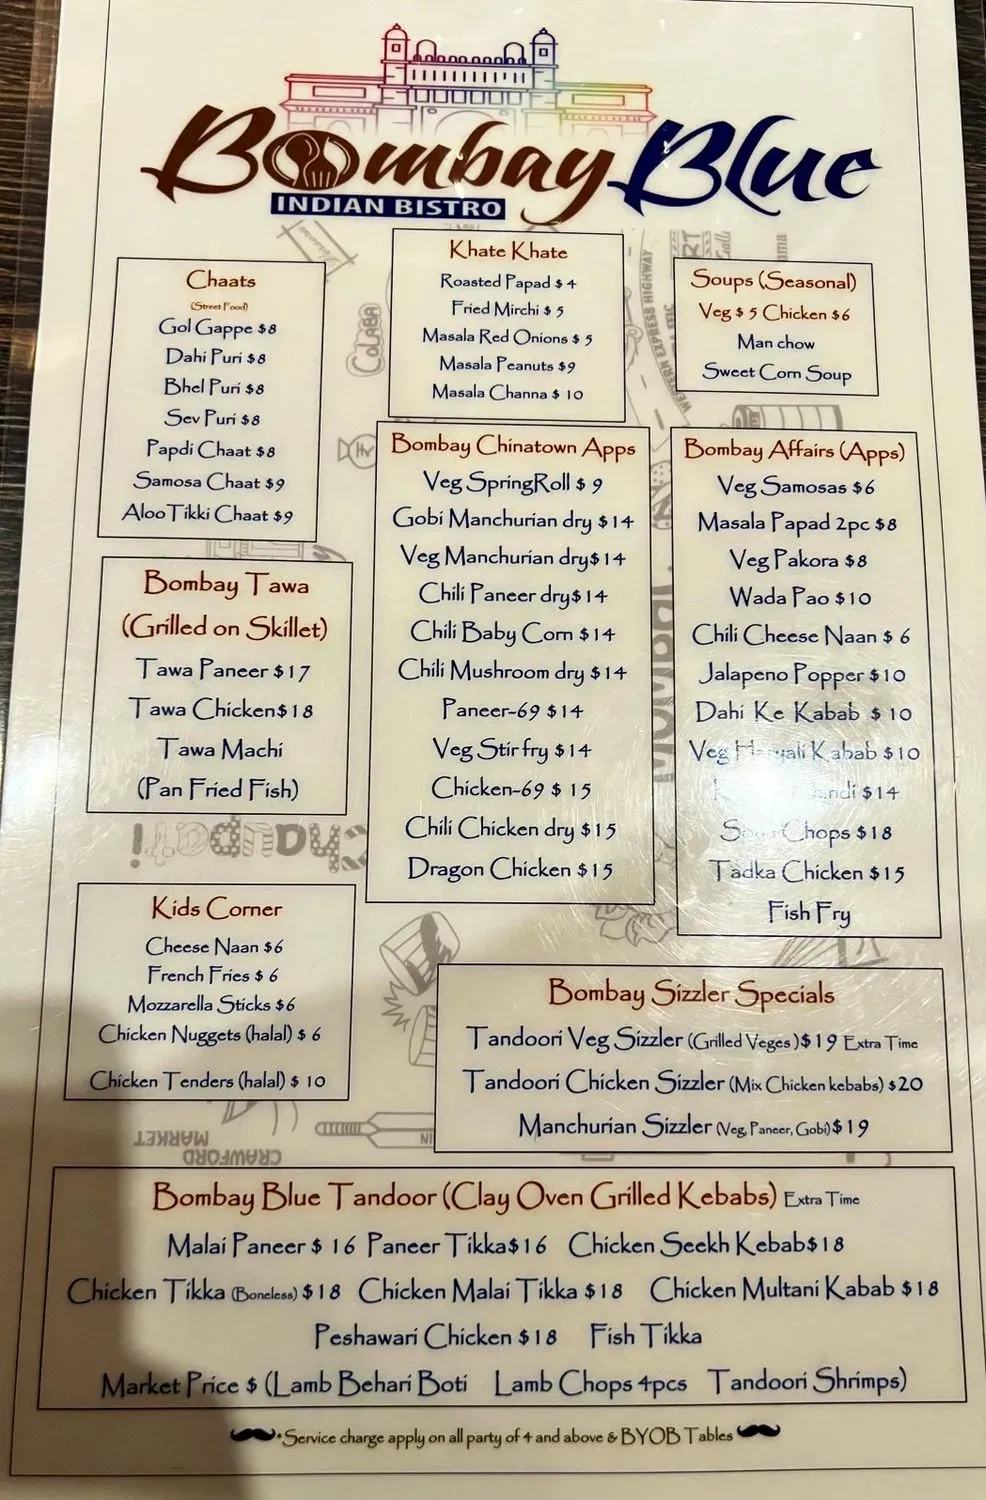 Bombay Blue
INDIAN BISTRO
Chaats
(Street Food)
Gol Gappe $8
Dahi Puri $8
Bhel Puri $8
Sev Puri $8
Papdi Chaat $8
Samosa Chaat $9
Aloo Tikki Chaat $9
Khate Khate
Roasted Papad $ 4
Fried Mirchi $ 5
Masala Red Onions $ 5
Masala Peanuts $9
Masala Channa $ 10
Soups (Seasonal)
Veg $ 5 Chicken $6
Man chow
Sweet Corn Soup
COLABA
WESTERN EXPRESS HIGHWAY
Bombay Tawa
(Grilled on Skillet)
Tawa Paneer $17
Tawa Chicken$18
Tawa Machi
(Pan Fried Fish)
Bombay Chinatown Apps
Veg SpringRoll $ 9
Gobi Manchurian dry $14
Veg Manchurian dry$14
Chili Paneer dry$14
Chili Baby Corn $14
Chili Mushroom dry $14
Paneer-69 $14
Veg Stir fry $14
Chicken-69 $ 15
Chili Chicken dry $15
Dragon Chicken $15
Bombay Affairs (Apps)
Veg Samosas $6
Masala Papad 2pc $8
Veg Pakora $8
Wada Pao $10
Chili Cheese Naan $ 6
Jalapeno Popper $10
Dahi Ke Kabab $ 10
Veg Kabab $10
$14
Chops $18
Tadka Chicken $15
Fish Fry
MUMBAI
chaupati
Kids Corner
Cheese Naan $6
French Fries $ 6
Mozzarella Sticks $6
Chicken Nuggets (halal) $ 6
Chicken Tenders (halal) $ 10
CRAWFORD
MARKET
Bombay Sizzler Specials
Tandoori Veg Sizzler (Grilled Veges )$19 Extra Time
Tandoori Chicken Sizzler (Mix Chicken kebabs) $20
Manchurian Sizzler (Veg, Paneer, Gobi)$19
Bombay Blue Tandoor (Clay Oven Grilled Kebabs) Extra Time
Malai Paneer $ 16 Paneer Tikka$16 Chicken Seekh Kebab$18
Chicken Tikka (Boneless) $18 Chicken Malai Tikka $18 Chicken Multani Kabab $18
Peshawari Chicken $18 Fish Tikka
Market Price $ (Lamb Behari Boti Lamb Chops 4pcs Tandoori Shrimps)
*Service charge apply on all party of 4 and above & BYOB Tables